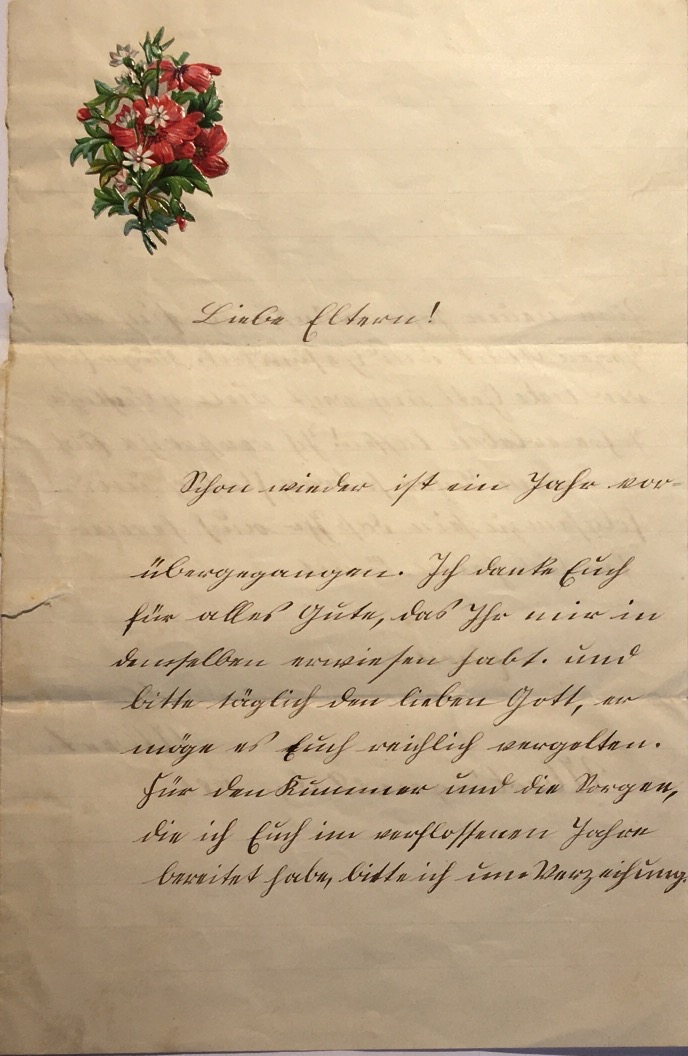 Liebe Eltern!
Schon wieder ist ein Jahr vor-
übergegangen. Ich danke Euch
für alles Gute, das Ihr mir in
demselben erwiesen habt. und
bitte täglich den lieben Gott, er
möge es Euch reichlich vergelten.
Für den Kummer und die Sorgen,
die ich Euch im verflossenen Jahre
bereitet habe, bitte ich um Verzeihung.